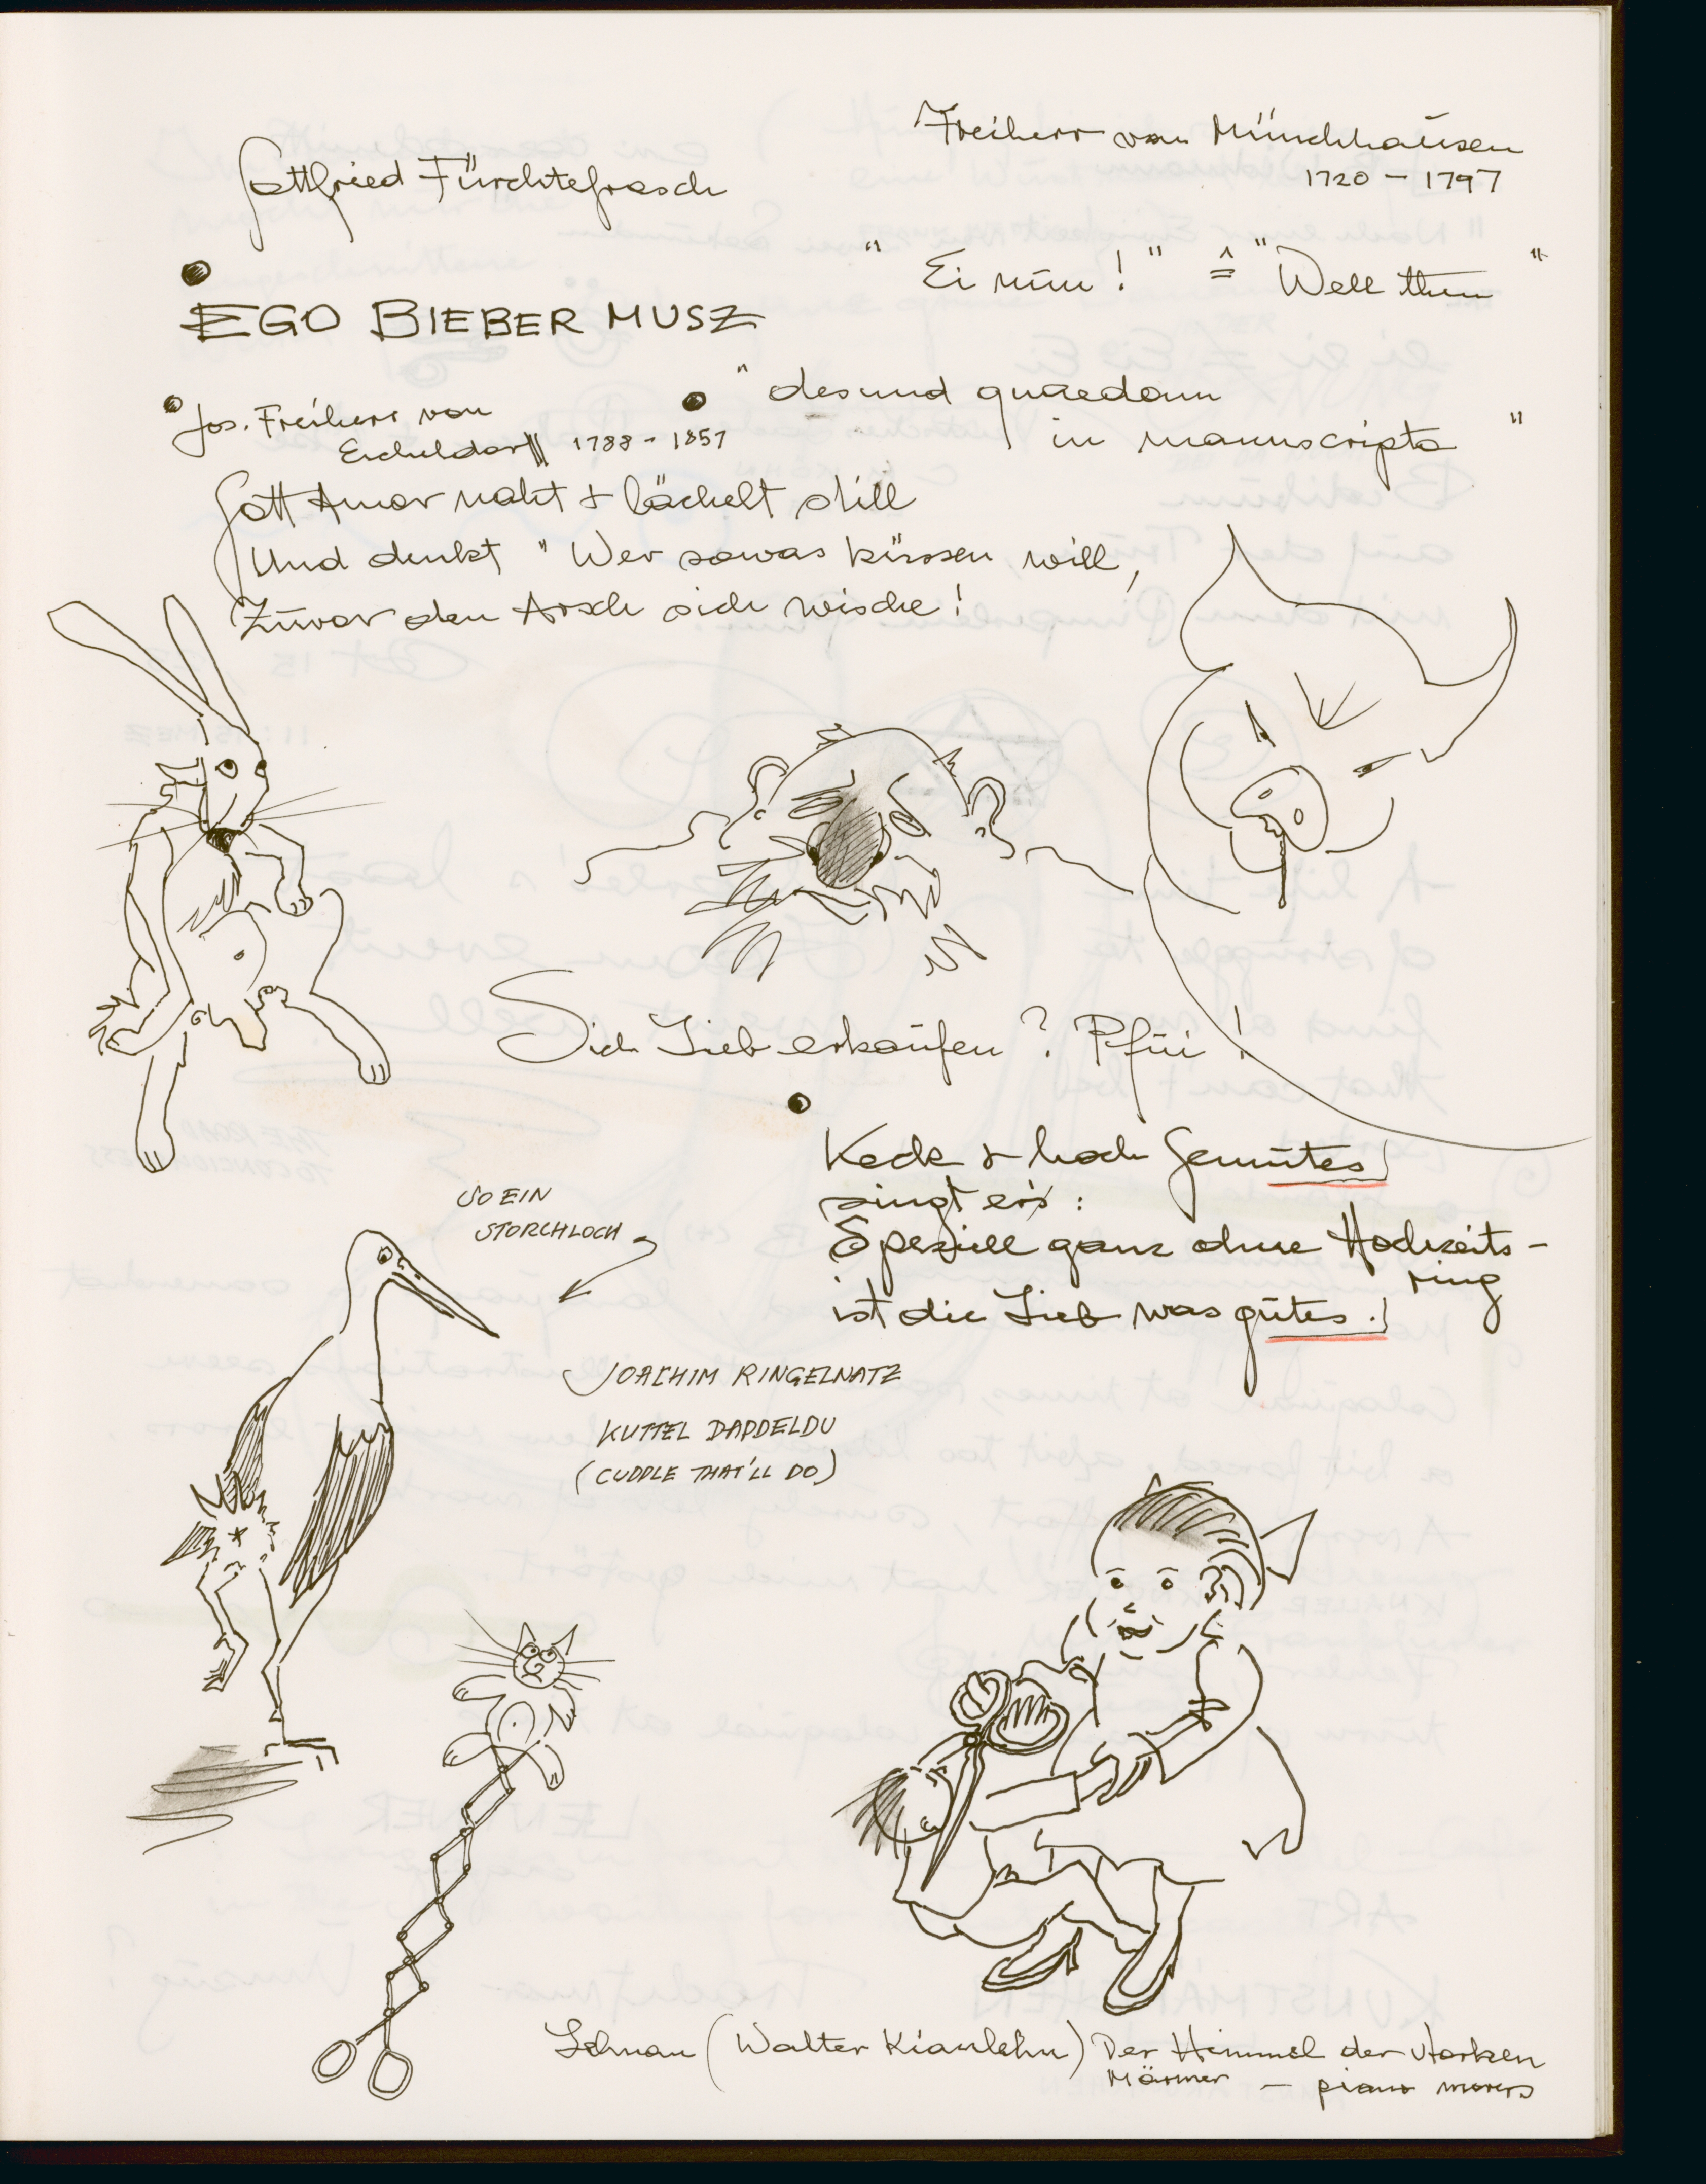 Freiherr von Münchhausen
1720 – 1797
Gottfried Fürchtefrosch
" Ei nun! " ≙ "Well then "
EGO BIEBER MUSZ
Jos. Freiherr von
1788 - 1857
" desund quaedam
in manuscripto "
Gott Amor naht + lächelt still
Und denkt " Wer sowas küssen will,
Zuvor den Arsch sich wische!
Sich Lieb erkaufen? Pfui!
Keck + hoch Gemutes
singt er's:
Speziell ganz ohne Hochzeits-
ring
ist die Lieb was gutes.
SO EIN
STORCHLOCH
JOACHIM RINGELNATZ
KUTTEL DADDELDU
(CUDDLE THAT'LL DO)
(Walter Kiaulehn) Der Himmel der starken
Männer — piano movers